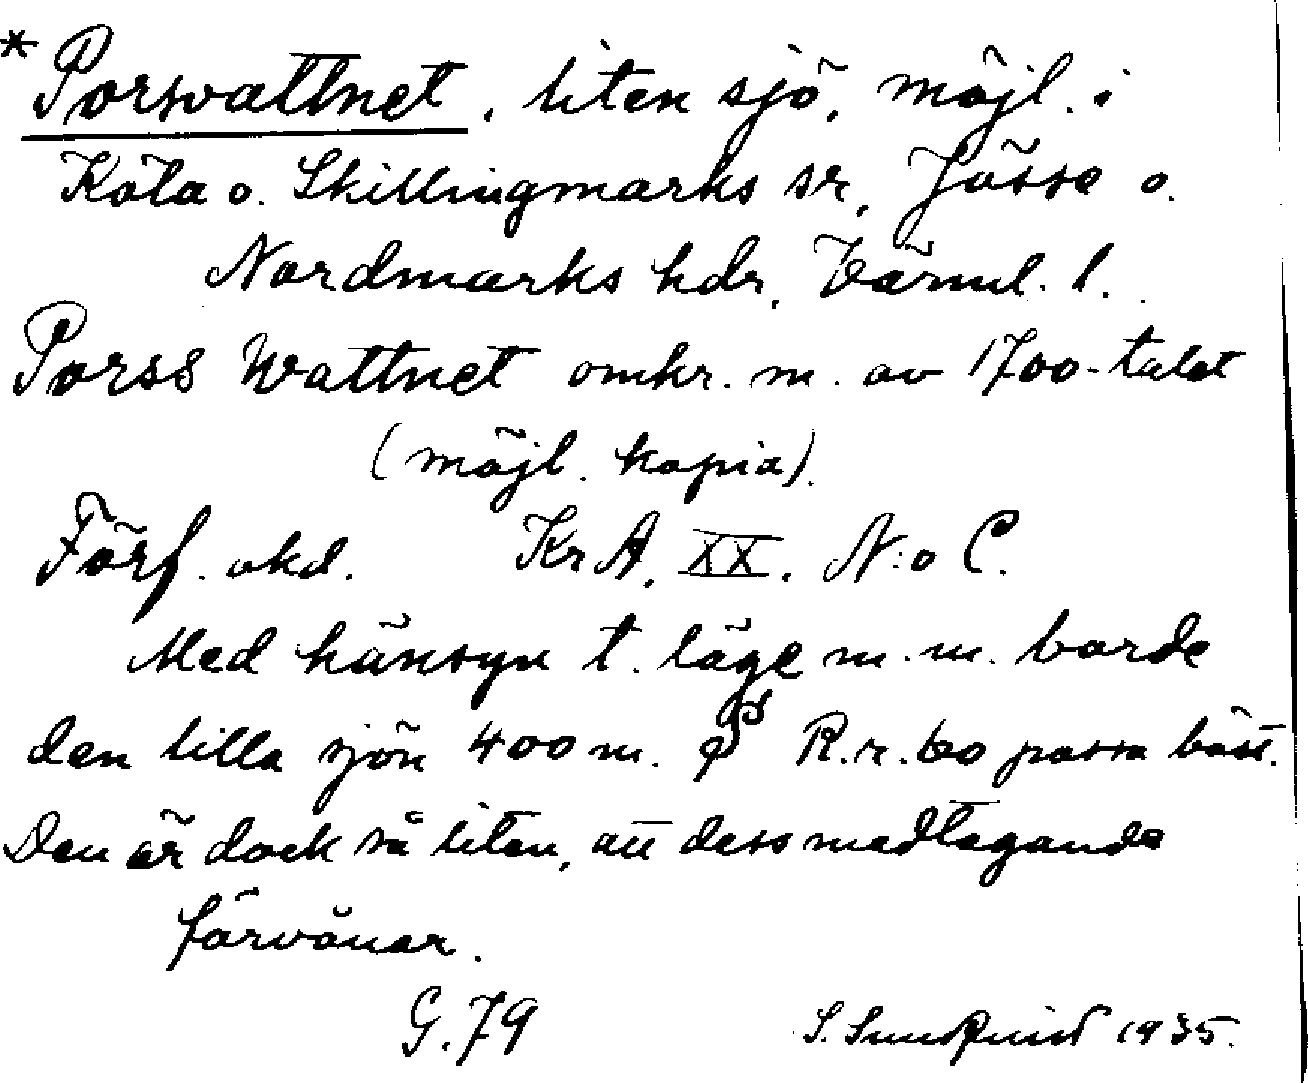 * Porsvattnet, liten sjö, möjl. i
Köla o. Skillingmarks sr, Jösse o.
Nordmarks hdr, Värml. l.
Porss Wattnet omkr. m. av 1700-talet
(möjl. kopia).
Förf. okd. KrA, XX. N:o C.
Med hänsyn t. läge m.m. borde
den lilla sjön 400 m. R.r. 60 passa bäst.
Den är dock så liten, att dess medtagande
förvånar.
G. 79 S. Sundquist 1935.